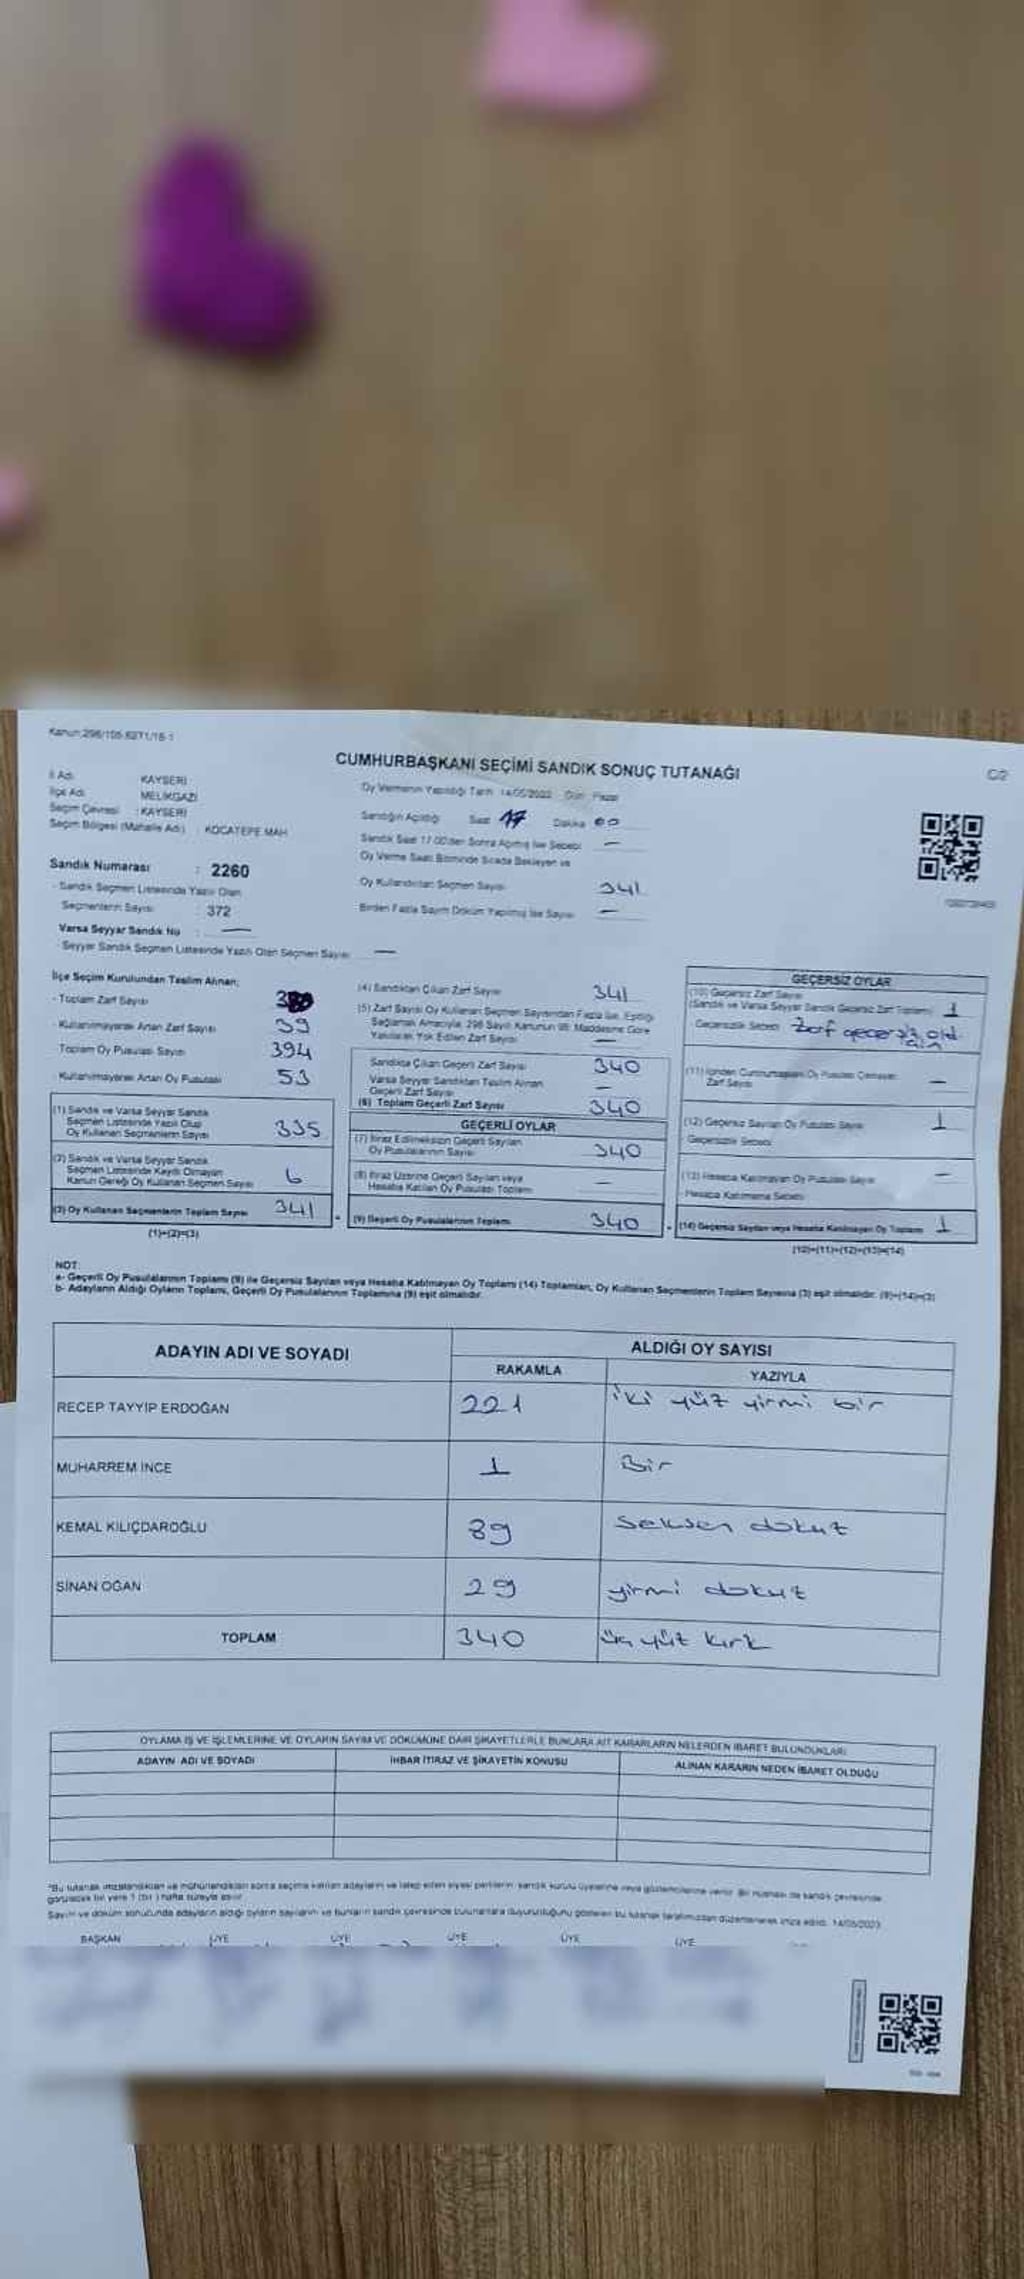 Kanun:298/105-6271/16-1
CUMHURBAŞKANI SEÇİMİ SANDIK SONUÇ TUTANAĞI
C/2
İl Adı KAYSERİ
İlçe Adı MELİKGAZİ
Seçim Çevresi : KAYSERİ
Seçim Bölgesi (Mahalle Adı) : KOCATEPE MAH
Sandık Numarası : 2260
- Sandık Seçmen Listesinde Yazılı Olan
Seçmenlerin Sayısı : 372
Varsa Seyyar Sandık No : —
- Seyyar Sandık Seçmen Listesinde Yazılı Olan Seçmen Sayısı —
Oy Vermenin Yapıldığı Tarih 14/05/2023 Gün: Pazar
Sandığın Açıldığı Saat 17 Dakika 00
Sandık Saat 17.00'den Sonra Açılmış İse Sebebi —
Oy Verme Saati Bitiminde Sırada Bekleyen ve
Oy Kullandırılan Seçmen Sayısı 341
Birden Fazla Sayım Döküm Yapılmış İse Sayısı —
İlçe Seçim Kurulundan Teslim Alınan;
- Toplam Zarf Sayısı
- Kullanılmayarak Artan Zarf Sayısı 39
Toplam Oy Pusulası Sayısı 394
- Kullanılmayarak Artan Oy Pusulası 53
(1) Sandık ve Varsa Seyyar Sandık
Seçmen Listesinde Yazılı Olup
Oy Kullanan Seçmenlerin Sayısı 335
(2) Sandık ve Varsa Seyyar Sandık
Seçmen Listesinde Kayıtlı Olmayan
Kanun Gereği Oy Kullanan Seçmen Sayısı 6
(3) Oy Kullanan Seçmenlerin Toplam Sayısı 341
(1)+(2)=(3)
(4) Sandıktan Çıkan Zarf Sayısı 341
(5) Zarf Sayısı Oy Kullanan Seçmen Sayısından Fazla İse, Eşitliği
Sağlamak Amacıyla, 298 Sayılı Kanunun 98. Maddesine Göre
Yakılarak Yok Edilen Zarf Sayısı —
Sandıkta Çıkan Geçerli Zarf Sayısı 340
Varsa Seyyar Sandıktan Teslim Alınan
Geçerli Zarf Sayısı —
(6) Toplam Geçerli Zarf Sayısı 340
GEÇERLİ OYLAR
(7) İtiraz Edilmeksizin Geçerli Sayılan
Oy Pusulalarının Sayısı 340
(8) İtiraz Üzerine Geçerli Sayılan veya
Hesaba Katılan Oy Pusulası Toplamı —
(9) Geçerli Oy Pusulalarının Toplamı 340
GEÇERSİZ OYLAR
(10) Geçersiz Zarf Sayısı
(Sandık ve Varsa Seyyar Sandık Geçersiz Zarf Toplamı) 1
Geçersizlik Sebebi Zarf geçersiz
(11) İçinden Cumhurbaşkanı Oy Pusulası Çıkmayan
Zarf Sayısı —
(12) Geçersiz Sayılan Oy Pusulası Sayısı 1
Geçersizlik Sebebi
(13) Hesaba Katılmayan Oy Pusulası Sayısı —
Hesaba Katılmama Sebebi
(14) Geçersiz Sayılan veya Hesaba Katılmayan Oy Toplamı 1
(10)+(11)+(12)+(13)=(14)
NOT:
a- Geçerli Oy Pusulalarının Toplamı (9) ile Geçersiz Sayılan veya Hesaba Katılmayan Oy Toplamı (14) Toplamları, Oy Kullanan Seçmenlerin Toplam Sayısına (3) eşit olmalıdır. (9)+(14)=(3)
b- Adayların Aldığı Oyların Toplamı, Geçerli Oy Pusulalarının Toplamına (9) eşit olmalıdır.
ADAYIN ADI VE SOYADI
ALDIĞI OY SAYISI
RAKAMLA YAZIYLA
RECEP TAYYİP ERDOĞAN 221 iki yüz yirmi bir
MUHARREM İNCE 1 Bir
KEMAL KILIÇDAROĞLU 89 seksen dokuz
SİNAN OĞAN 29 yirmi dokuz
TOPLAM 340 üç yüz kırk
OYLAMA İŞ VE İŞLEMLERİNE VE OYLARIN SAYIM VE DÖKÜMÜNE DAİR ŞİKAYETLERLE BUNLARA AİT KARARLARIN NELERDEN İBARET BULUNDUKLARI
ADAYIN ADI VE SOYADI İHBAR İTİRAZ VE ŞİKAYETİN KONUSU ALINAN KARARIN NEDEN İBARET OLDUĞU
"Bu tutanak imzalandıktan ve mühürlendikten sonra seçime katılan adayların ve talep eden siyasi partilerin sandık kurulu üyelerine veya gözlemcilerine verilir. Bir nüshası da sandık çevresinde
görülecek bir yere 1 (bir) hafta süreyle asılır.
Sayım ve döküm sonucunda adayların aldığı oyların sayılarını ve bunların sandık çevresinde bulunanlara duyurulduğunu gösteren bu tutanak tarafımızdan düzenlenerek imza edildi. 14/05/2023
BAŞKAN ÜYE ÜYE ÜYE ÜYE ÜYE